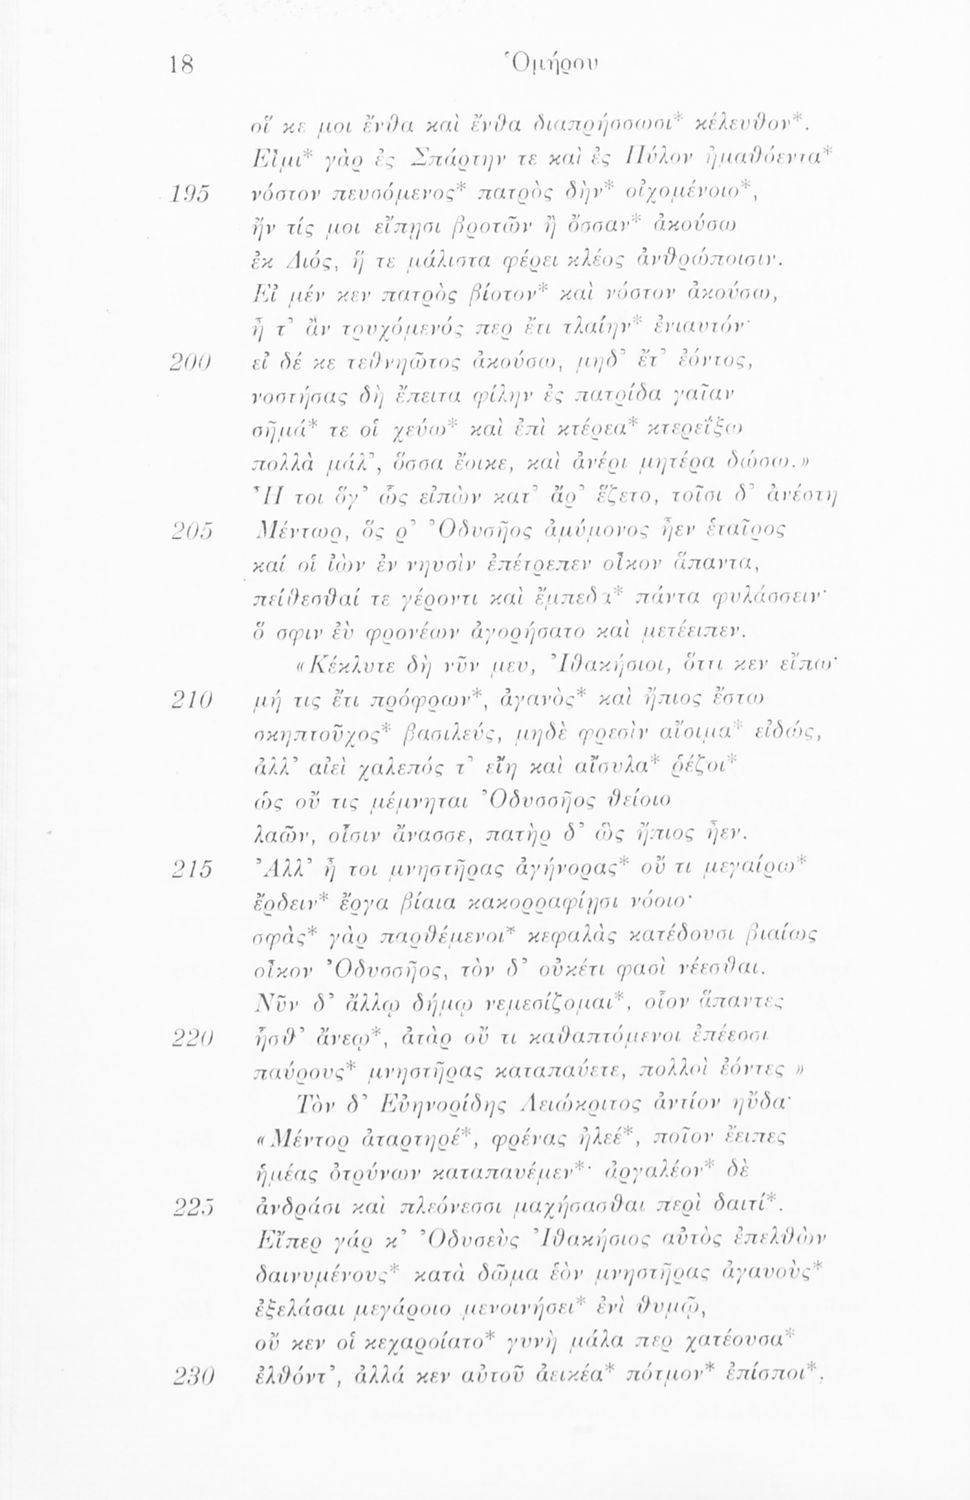 18 Ὁμήρου
οἵ κε μοι ἔνθα καὶ ἔνθα διαπρήσσωσι* κέλευθον*.
Εἶμι* γὰρ ἐς Σπάρτην τε καὶ ἐς Πύλον ἠμαθόεντα*
195 νόστον πευσόμενος* πατρὸς δὴν* οἰχομένοιο*,
ἤν τίς μοι εἴπῃσι βροτῶν ἢ ὄσσαν* ἀκούσω
ἐκ Διός, ἥ τε μάλιστα φέρει κλέος ἀνθρώποισιν.
Εἰ μέν κεν πατρὸς βίοτον* καὶ νόστον ἀκούσω,
ἦ τ' ἂν τρυχόμενός περ ἔτι τλαίην* ἐνιαυτόν·
200 εἰ δέ κε τεθνηῶτος ἀκούσω, μηδ' ἔτ' ἐόντος,
νοστήσας δὴ ἔπειτα φίλην ἐς πατρίδα γαῖαν
σῆμά* τε οἱ χεύω* καὶ ἐπὶ κτέρεα* κτερεΐξω
πολλὰ μάλ', ὅσσα ἔοικε, καὶ ἀνέρι μητέρα δώσω.»
Ἦ τοι ὅγ' ὣς εἰπὼν κατ' ἄρ' ἕζετο, τοῖσι δ' ἀνέστη
205 Μέντωρ, ὅς ρ' Ὀδυσῆος ἀμύμονος ἦεν ἑταῖρος
καί οἱ ἰὼν ἐν νηυσὶν ἐπέτρεπεν οἶκον ἅπαντα,
πείθεσθαί τε γέροντι καὶ ἔμπεδα* πάντα φυλάσσειν·
ὅ σφιν ἐὺ φρονέων ἀγορήσατο καὶ μετέειπεν.
«Κέκλυτε δὴ νῦν μευ, Ἰθακήσιοι, ὅττι κεν εἴπω·
210 μή τις ἔτι πρόφρων*, ἀγανὸς* καὶ ἤπιος ἔστω
σκηπτοῦχος* βασιλεύς, μηδὲ φρεσὶν αἴσιμα* εἰδώς,
ἀλλ' αἰεὶ χαλεπός τ' εἴη καὶ αἴσυλα* ῥέζοι*
ὡς οὔ τις μέμνηται Ὀδυσσῆος θείοιο
λαῶν, οἷσιν ἄνασσε, πατὴρ δ' ὣς ἤπιος ἦεν.
215 Ἀλλ' ἦ τοι μνηστῆρας ἀγήνορας* οὔ τι μεγαίρω*
ἔρδειν* ἔργα βίαια κακορραφίῃσι νόοιο·
σφὰς* γὰρ παρθέμενοι* κεφαλὰς κατέδουσι βιαίως
οἶκον Ὀδυσσῆος, τὸν δ' οὐκέτι φασὶ νέεσθαι.
Νῦν δ' ἄλλῳ δήμῳ νεμεσίζομαι*, οἷον ἅπαντες
220 ἧσθ' ἄνεῳ*, ἀτὰρ οὔ τι καθαπτόμενοι ἐπέεσσι
παύρους* μνηστῆρας καταπαύετε, πολλοὶ ἐόντες »
Τὸν δ' Εὐηνορίδης Λειώκριτος ἀντίον ηὔδα·
«Μέντορ ἀταρτηρέ*, φρένας ἠλεέ*, ποῖον ἔειπες
ἡμέας ὀτρύνων καταπαυέμεν*· ἀργαλέον* δὲ
225 ἀνδράσι καὶ πλεόνεσσι μαχήσασθαι περὶ δαιτί*.
Εἴπερ γάρ κ' Ὀδυσεὺς Ἰθακήσιος αὐτὸς ἐπελθὼν
δαινυμένους* κατὰ δῶμα ἑὸν μνηστῆρας ἀγαυοὺς*
ἐξελάσαι μεγάροιο μενοινήσει* ἐνὶ θυμῷ,
οὔ κεν οἱ κεχαροίατο* γυνὴ μάλα περ χατέουσα*
230 ἐλθόντ', ἀλλά κεν αὐτοῦ ἀεικέα* πότμον* ἐπίσποι*.